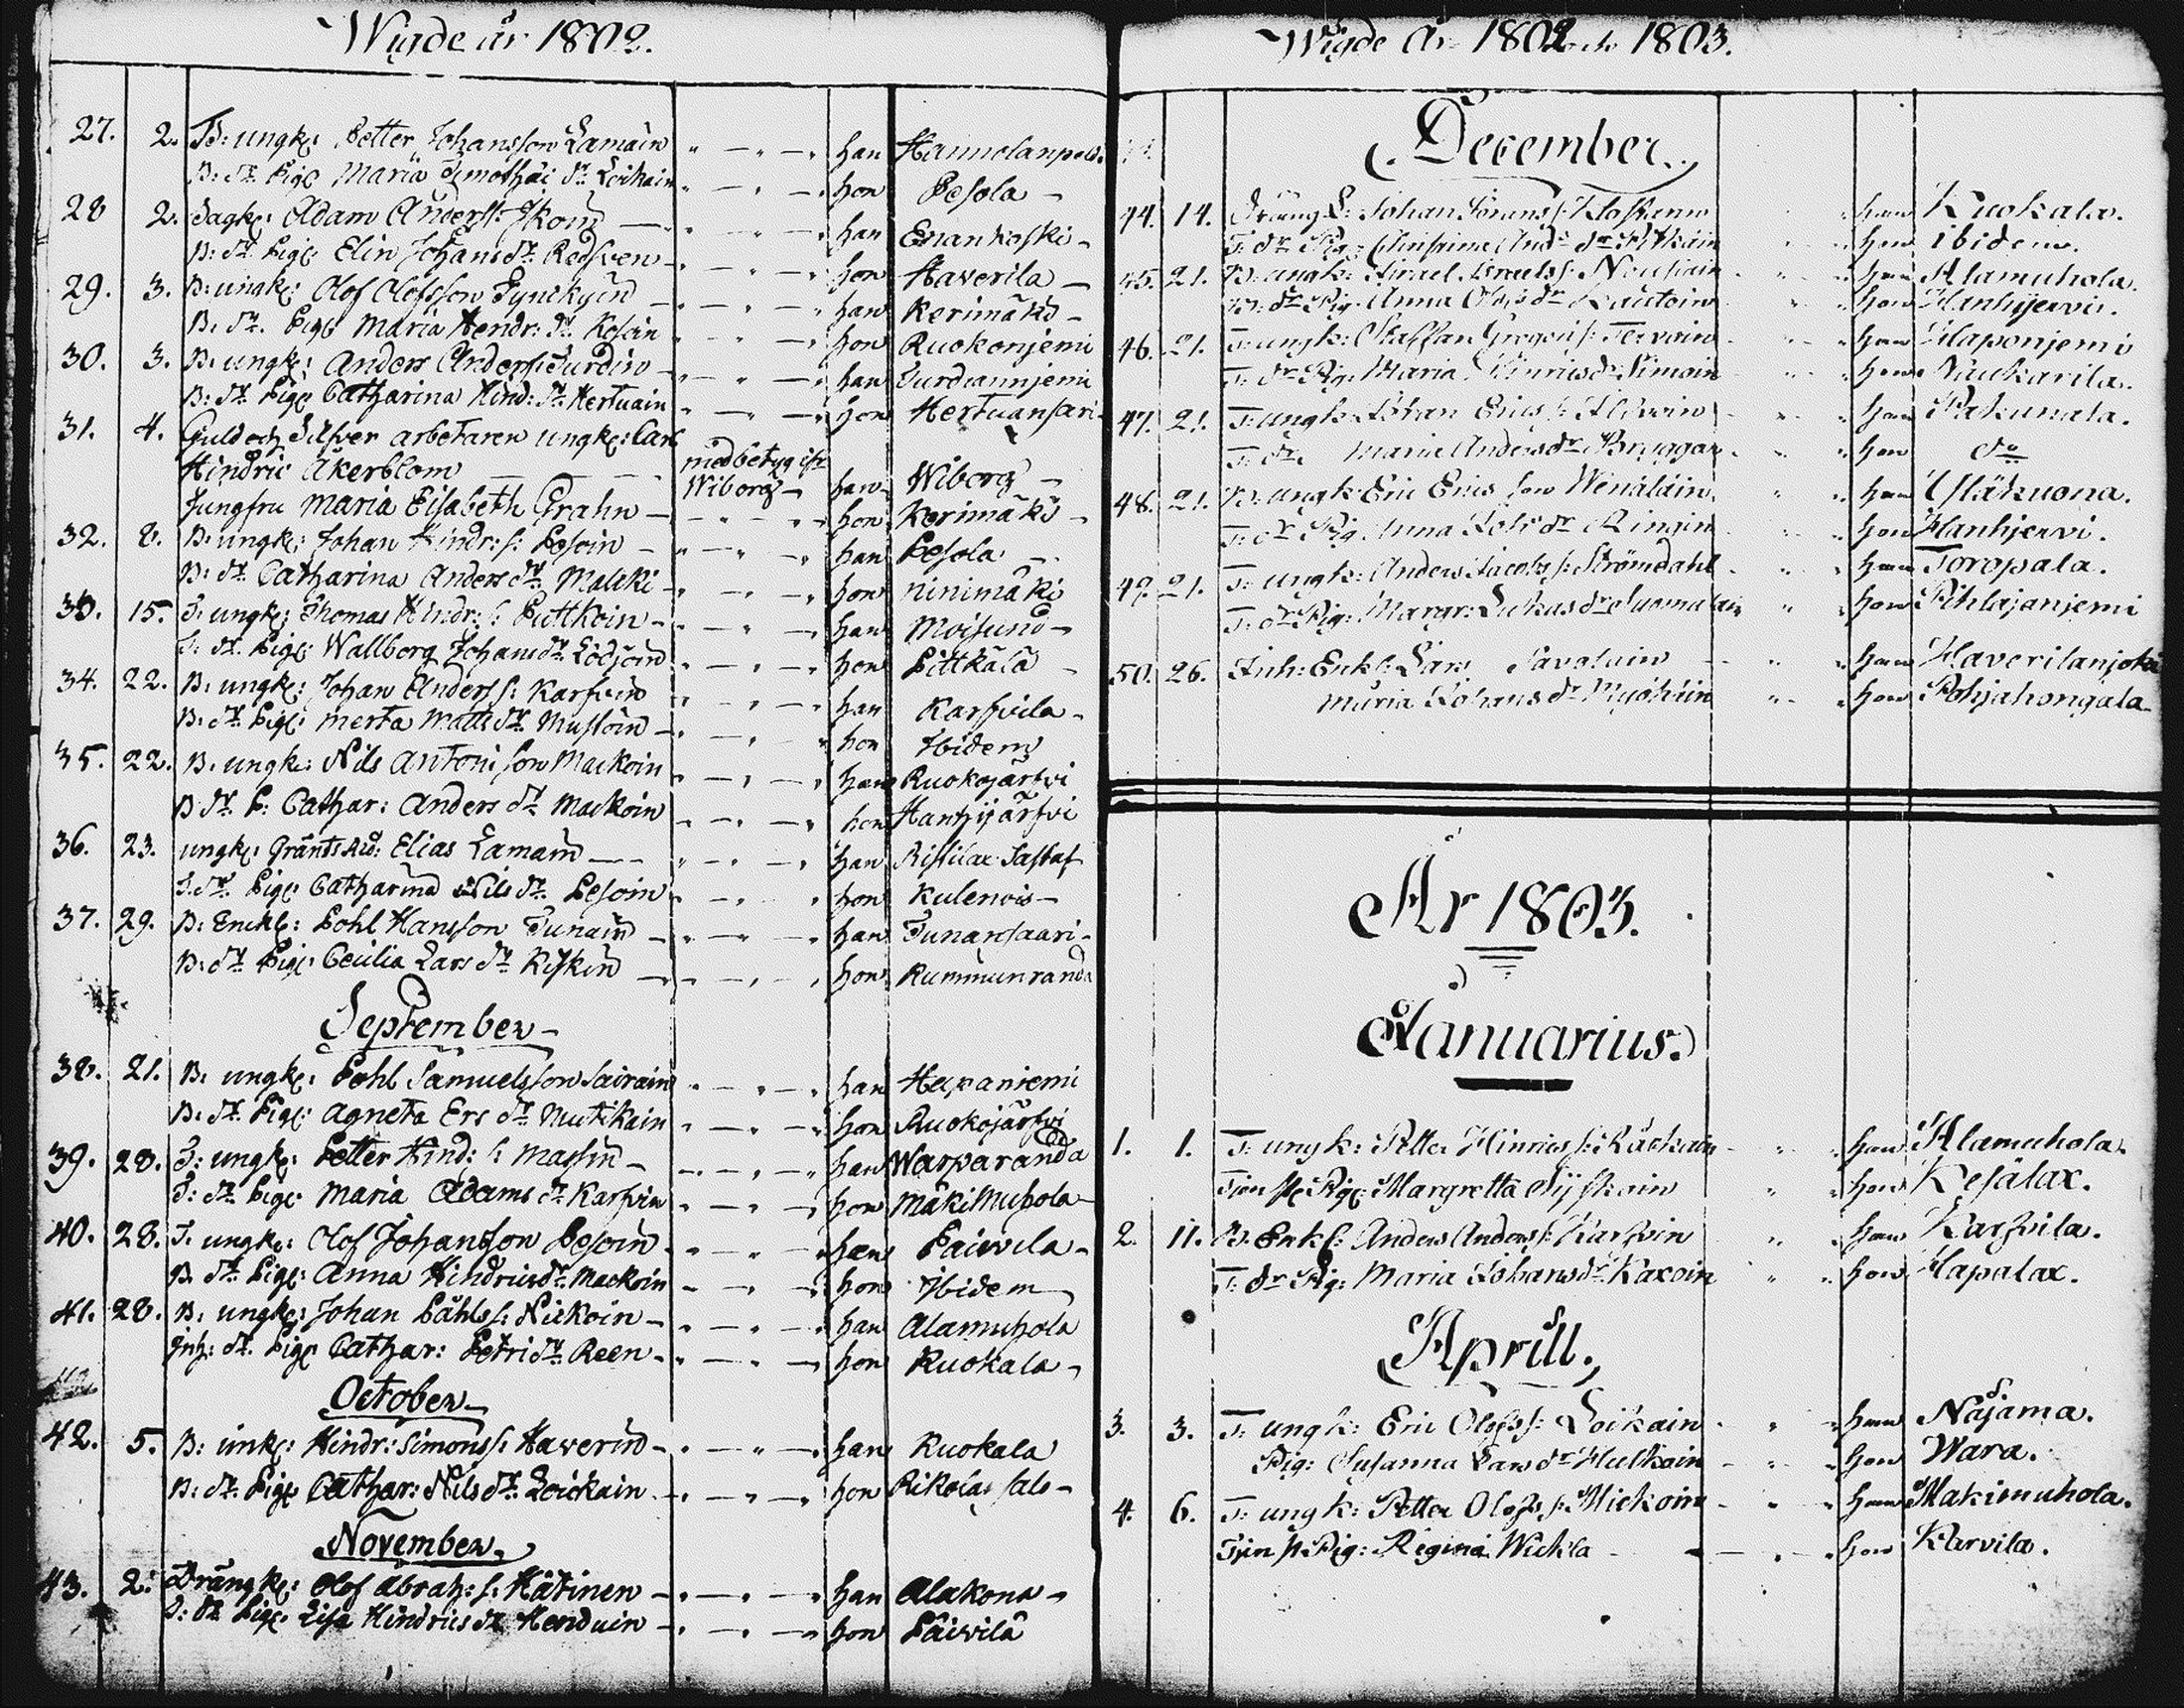 Wigde år 1802.
27. 2. B: ungk: Petter Johansson Lamain " — " — " han Hannolanpold
B: dr. Pig: Maria Timothæi dr. Loikain " — " — hon Pesola —
28 2. Sagk: Adam Anderss: Ikoin — " — " han Enankoski —
B: dr. Pig: Elin Johans dr. Redsven — " — " hon Haverila —
29. 3. B: ungk: Olof Olofsson Pynckyin — " — " han Kerimäki —
B: dr. Pig: Maria Hendr: dr. Kosoin " — " — hon Ruokonjemi
30. 3. B: ungk: Anders Anderss: Jurdin — " — " — han Jurdiannjemi
B: dr. Pig: Catharina Hind: dr. Hertuain " — " — hon Hertuansari
31. 4. Guld och Silfver arbetaren ungk: Carl
Hindric Åkerblom — — — med betyg ifr. Wiborg — han Wiborg —
Jungfru Maria Elisabeth Grahn — — " — " hon Kerimäki —
32. 8. B: ungk: Johan Hindr: s: Pesoin — " — " — han Pesola —
B: dr. Catharina Anders dr. Malcki — " — " — hon Ninimäki
33. 15. T: ungk: Thomas Hindr: s: Puttkoin — " — " — han Moisund —
T: dr. Pig: Wallborg Johans dr. Lödjoin " — " — hon Pittkälä —
34. 22. B: ungk: Johan Anderss: Karfvin " — " — han Karfvila —
B: dr. Pig: Merta Matts dr. Mustoin — " — " hon Ibidem
35. 22. B: ungk: Nils Antoni son Mackoin " — " — han Ruokojärfvi
B dr. P: Cathar: Anders dr. Mackoin " — " — hon Hanhijärfvi
36. 23. ungk: Gränts Rid: Elias Lamain — — " — " — han Ristilax
T: dr. Pig: Catharina Nils dr. Pesoin " — " — hon Kulenois —
37. 29. B: Enckl: Pohl Hansson Tunain — " — " — han Tunansaari —
B: dr. Pig: Cecilia Lars dr. Kiskin — " — " — hon Kummunranda
September —
38. 21. B: ungk: Pohl Samuelsson Sairain " — " — han Hapaniemi
B: dr. Pig: Agneta Ers dr. Mutikain " — " — hon Ruokojärfvi
39. 28. T: ungk: Petter Hind: s: Massin — " — " — han Warparanda
T: dr. Pig: Maria Adams dr. Karfvin " — " — hon Mäkimuhola —
40. 28. T: ungk: Olof Johansson Pesoin " — " — han Päivila —
B. dr. Pig: Anna Hindrics dr. Mackoin " — " — hon Ibidem
41. 28. B: ungk: Johan Påhls s: Nickoin — " — " — han Alamuhola
Inh: dr. Pig: Cathar: Petri dr. Reen — " — " — hon Ruokala —
October —
42. 5. B: unk: Hindr: Simonss: Haverin — " — " — han Ruokala
B: dr. Pig: Cathar: Nils dr. Loickain — " — " — hon Rikolas salo —
November.
43. 2. Drängk: Olof Abrah: s: Hätinen — " — " — han Alakona —
T: dr. Pig: Lisa Hindrics dr. Henduin — " — " — hon Päivilä
Wigde År 1802 och 1803.
December.
44. 14. Dräng E: Johan Görans s: Klosterin " " han Kuokala.
T: dr Pig: Christina And: dr Pitkäin " " hon ibidem.
45. 21. B: ungk: Israel Israels s: Nousiain " " han Alamuhola.
B: dr Pig: Anna Olofs dr Kautoin " " hon Hanhijervi.
46. 21. T: ungk: Staffan Gregori s: Tervoin " " han Haponjemi
T: dr Pig: Maria Hinrics dr Simoin " " hon Kaukarila.
47. 21. T: ungk: Johan Erics s: Ilsvoin " " han Rakumala.
T: dr. Maria Anders dr Bryggar " " hon do
48. 21. B: ungk: Eric Erics son Wenäläin " " han Yläkuona.
T: dr Pig: Anna Johs dr Ringin " " hon Hanhjervi.
49. 21. T: ungk: Anders Jacobs s: Strömdahl " " han Toropala.
T: dr Pig: Margr: Lukas dr Suomalain " " hon Pihlajanjemi
50. 26. Inh: Enkl: Lars Savolain " " han Haverilanjoki
Maria Johans dr Myöhäin " " hon Pohjahongala.
År 1803.
Januarius.
1. 1. T: ungk: Petter Hinrics s: Räckain " " han Alamuhola.
Tjenste Pig: Margretta Nyskain " " hon Kesälax.
2. 11. B: Enkl: Anders Anders s: Karfvin " " han Karfvila.
T: dr Pig: Maria Johans dr Kaxoin " " hon Hapalax.
Aprill.
3. 3. T: ungk: Eric Olofs s: Loikain " " han Näjama.
Pig: Susanna Lars dr Hulkoin " " hon Wara.
4. 6. T: ungk: Petter Olofs s: Mickoin " " han Makimuhola.
Tjenste Pig: Regina Wickla — " hon Karvila.